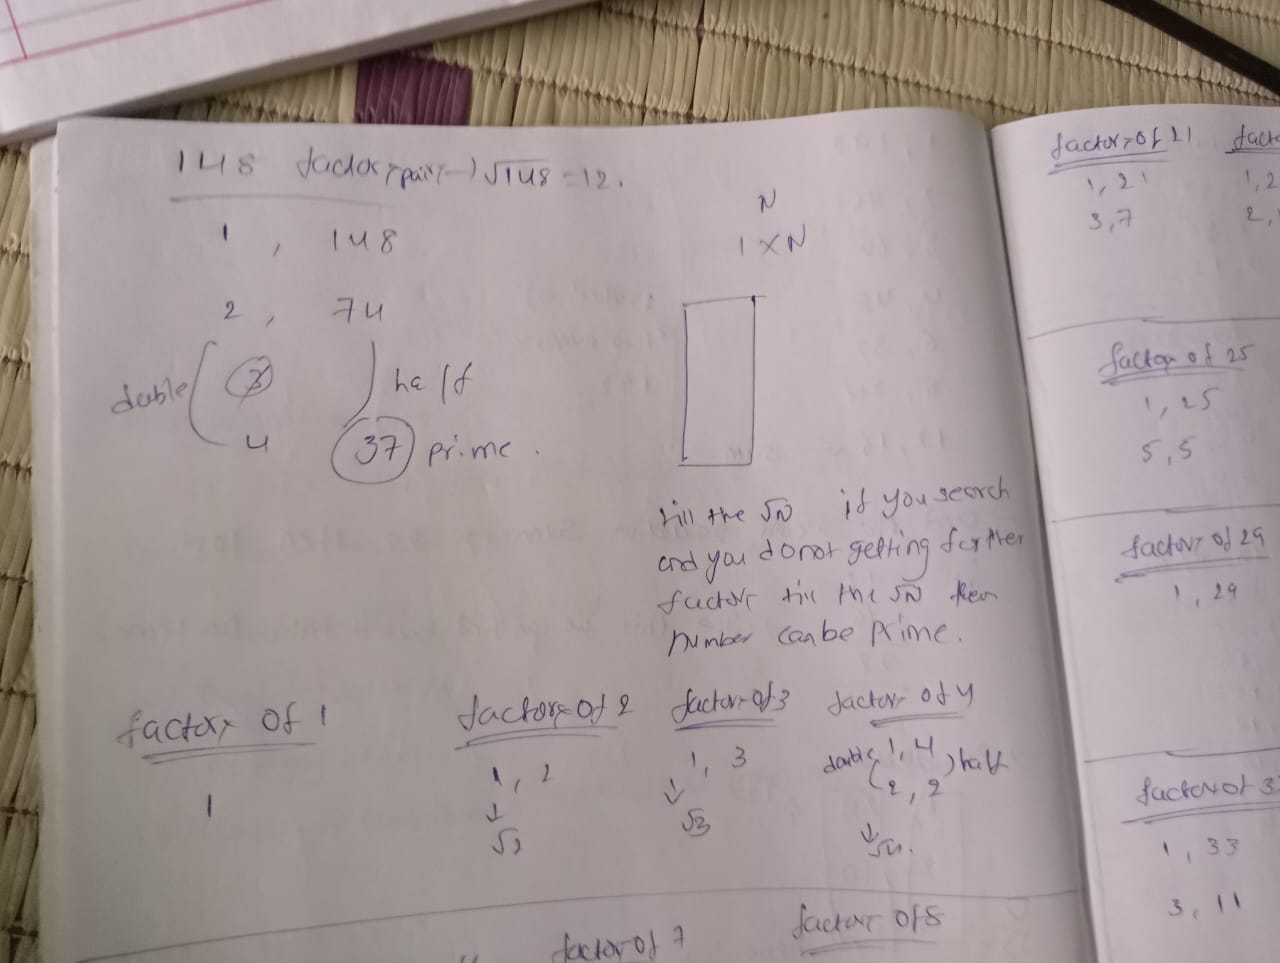 148 factors pairs → √148 = 12.
1, 148
2, 74
double ( 3 ) half
4 37 prime.
N
1 X N
till the √N if you search
and you do not getting further
factors till the √N then
number can be prime.
factors of 1
1
factors of 2
1, 2
↓
√2
factors of 3
1, 3
↓
√3
factors of 4
double ( 1, 4 ) half
2, 2
↓
√4.
factors of 7
factors of 8
factors of 21
1, 21
3, 7
1, 2
2,
factors of 25
1, 25
5, 5
factors of 29
1, 29
factors of 3
1, 33
3, 11